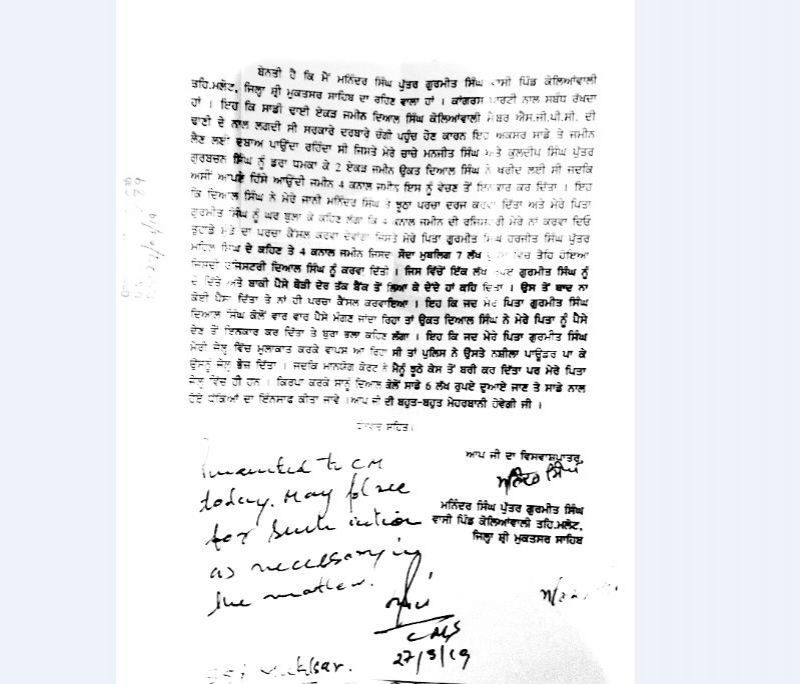 ਬੇਨਤੀ ਹੈ ਕਿ ਮੈਂ ਮਨਿੰਦਰ ਸਿੰਘ ਪੁੱਤਰ ਗੁਰਮੀਤ ਸਿੰਘ ਵਾਸੀ ਪਿੰਡ ਕੋਲਿਆਂਵਾਲੀ
ਤਹਿ.ਮਲੋਟ, ਜਿਲ੍ਹਾ ਸ਼੍ਰੀ ਮੁਕਤਸਰ ਸਾਹਿਬ ਦਾ ਰਹਿਣ ਵਾਲਾ ਹਾਂ । ਕਾਂਗਰਸ ਪਾਰਟੀ ਨਾਲ ਸਬੰਧ ਰੱਖਦਾ
ਹਾਂ । ਇਹ ਕਿ ਸਾਡੀ ਢਾਈ ਏਕੜ ਜਮੀਨ ਦਿਆਲ ਸਿੰਘ ਕੋਲਿਆਂਵਾਲੀ ਮੈਂਬਰ ਐਸ.ਜੀ.ਪੀ.ਸੀ. ਦੀ
ਢਾਣੀ ਦੇ ਨਾਲ ਲਗਦੀ ਸੀ ਸਰਕਾਰੇ ਦਰਬਾਰੇ ਚੰਗੀ ਪਹੁੰਚ ਹੋਣ ਕਾਰਨ ਇਹ ਅਕਸਰ ਸਾਡੇ ਤੇ ਜਮੀਨ
ਲੈਣ ਲਈ ਦਬਾਅ ਪਾਉਂਦਾ ਰਹਿੰਦਾ ਸੀ ਜਿਸਤੇ ਮੇਰੇ ਚਾਚੇ ਮਨਜੀਤ ਸਿੰਘ ਅਤੇ ਕੁਲਦੀਪ ਸਿੰਘ ਪੁੱਤਰ
ਗੁਰਬਚਨ ਸਿੰਘ ਨੂੰ ਡਰਾ ਧਮਕਾ ਕੇ 2 ਏਕੜ ਜਮੀਨ ਉਕਤ ਦਿਆਲ ਸਿੰਘ ਨੇ ਖਰੀਦ ਲਈ ਸੀ ਜਦਕਿ
ਅਸੀਂ ਆਪਣੇ ਹਿੱਸੇ ਆਉਂਦੀ ਜਮੀਨ 4 ਕਨਾਲ ਜਮੀਨ ਇਸ ਨੂੰ ਵੇਚਣ ਤੋਂ ਇਨਕਾਰ ਕਰ ਦਿੱਤਾ । ਇਹ
ਕਿ ਦਿਆਲ ਸਿੰਘ ਨੇ ਮੇਰੇ ਜਾਨੀ ਮਨਿੰਦਰ ਸਿੰਘ ਤੇ ਝੂਠਾ ਪਰਚਾ ਦਰਜ ਕਰਵਾ ਦਿੱਤਾ ਅਤੇ ਮੇਰੇ ਪਿਤਾ
ਗੁਰਮੀਤ ਸਿੰਘ ਨੂੰ ਘਰ ਬੁਲਾ ਕੇ ਕਹਿਣ ਲੱਗਾ ਕਿ 4 ਕਨਾਲ ਜਮੀਨ ਦੀ ਰਜਿਸਟਰੀ ਮੇਰੇ ਨਾਂ ਕਰਵਾ ਦਿਓ
ਤੁਹਾਡੇ ਮੁੰਡੇ ਦਾ ਪਰਚਾ ਕੈਂਸਲ ਕਰਵਾ ਦੇਵਾਂਗਾ ਜਿਸਤੇ ਮੇਰੇ ਪਿਤਾ ਗੁਰਮੀਤ ਸਿੰਘ ਹਰਜੀਤ ਸਿੰਘ ਪੁੱਤਰ
ਸਿੰਘ ਦੇ ਕਹਿਣ ਤੇ 4 ਕਨਾਲ ਜਮੀਨ ਜਿਸਦਾ ਸੌਦਾ ਮੁਬਲਿਗ 7 ਲੱਖ ਵਿੱਚ ਤੈਹਿ ਹੋਇਆ
ਜਿਸਦੀ ਰਜਿਸਟਰੀ ਦਿਆਲ ਸਿੰਘ ਨੂੰ ਕਰਵਾ ਦਿੱਤੀ । ਜਿਸ ਵਿੱਚੋਂ ਇੱਕ ਲੱਖ ਰੁਪਏ ਗੁਰਮੀਤ ਸਿੰਘ ਨੂੰ
ਦੇ ਦਿੱਤੇ ਅਤੇ ਬਾਕੀ ਪੈਸੇ ਥੋੜੀ ਦੇਰ ਤੱਕ ਬੈਂਕ ਤੋਂ ਲਿਆ ਕੇ ਦੇਂਦੇ ਹਾਂ ਕਹਿ ਦਿਤਾ । ਉਸ ਤੋਂ ਬਾਦ ਨਾ
ਕੋਈ ਪੈਸਾ ਦਿੱਤਾ ਤੇ ਨਾਂ ਹੀ ਪਰਚਾ ਕੈਂਸਲ ਕਰਵਾਇਆ । ਇਹ ਕਿ ਜਦ ਮੇਰੇ ਪਿਤਾ ਗੁਰਮੀਤ ਸਿੰਘ
ਦਿਆਲ ਸਿੰਘ ਕੋਲੋਂ ਵਾਰ ਵਾਰ ਪੈਸੇ ਮੰਗਣ ਜਾਂਦਾ ਰਿਹਾ ਤਾਂ ਉਕਤ ਦਿਆਲ ਸਿੰਘ ਨੇ ਮੇਰੇ ਪਿਤਾ ਨੂੰ ਪੈਸੇ
ਦੇਣ ਤੋਂ ਇਨਕਾਰ ਕਰ ਦਿੱਤਾ ਤੇ ਬੁਰਾ ਭਲਾ ਕਹਿਣ ਲੱਗਾ । ਇਹ ਕਿ ਜਦ ਮੇਰੇ ਪਿਤਾ ਗੁਰਮੀਤ ਸਿੰਘ
ਮੇਰੀ ਜੇਲ੍ਹ ਵਿੱਚ ਮੁਲਾਕਾਤ ਕਰਕੇ ਵਾਪਸ ਆ ਰਿਹਾ ਸੀ ਤਾਂ ਪੁਲਿਸ ਨੇ ਉਸਤੇ ਨਸ਼ੀਲਾ ਪਾਊਡਰ ਪਾ ਕੇ
ਉਸਨੂੰ ਜੇਲ੍ਹ ਭੇਜ ਦਿੱਤਾ । ਜਦਕਿ ਮਾਨਯੋਗ ਕੋਰਟ ਨੇ ਮੈਨੂੰ ਝੂਠੇ ਕੇਸ ਤੋਂ ਬਰੀ ਕਰ ਦਿੱਤਾ ਪਰ ਮੇਰੇ ਪਿਤਾ
ਜੇਲ੍ਹ ਵਿੱਚ ਹੀ ਹਨ । ਕਿਰਪਾ ਕਰਕੇ ਸਾਨੂੰ ਦਿਆਲ ਕੋਲੋਂ ਸਾਡੇ 6 ਲੱਖ ਰੁਪਏ ਦੁਆਏ ਜਾਣ ਤੇ ਸਾਡੇ ਨਾਲ
ਹੋਏ ਧੱਕਿਆਂ ਦਾ ਇੰਨਸਾਫ ਕੀਤਾ ਜਾਵੇ ।ਆਪ ਜੀ ਦੀ ਬਹੁਤ-ਬਹੁਤ ਮੇਹਰਬਾਨੀ ਹੋਵੇਗੀ ਜੀ ।
ਸਹਿਤ।
ਆਪ ਜੀ ਦਾ ਵਿਸਵਾਸ਼ਪਾਤਰ,
ਮਨਿੰਦਰ ਸਿੰਘ
ਮਨਿੰਦਰ ਸਿੰਘ ਪੁੱਤਰ ਗੁਰਮੀਤ ਸਿੰਘ
ਵਾਸੀ ਪਿੰਡ ਕੋਲਿਆਂਵਾਲੀ ਤਹਿ.ਮਲੋਟ,
ਜਿਲ੍ਹਾ ਸ਼੍ਰੀ ਮੁਕਤਸਰ ਸਾਹਿਬ
Presented to CM
today. May please
for such action
as necessary in
the matter.
27/3/19